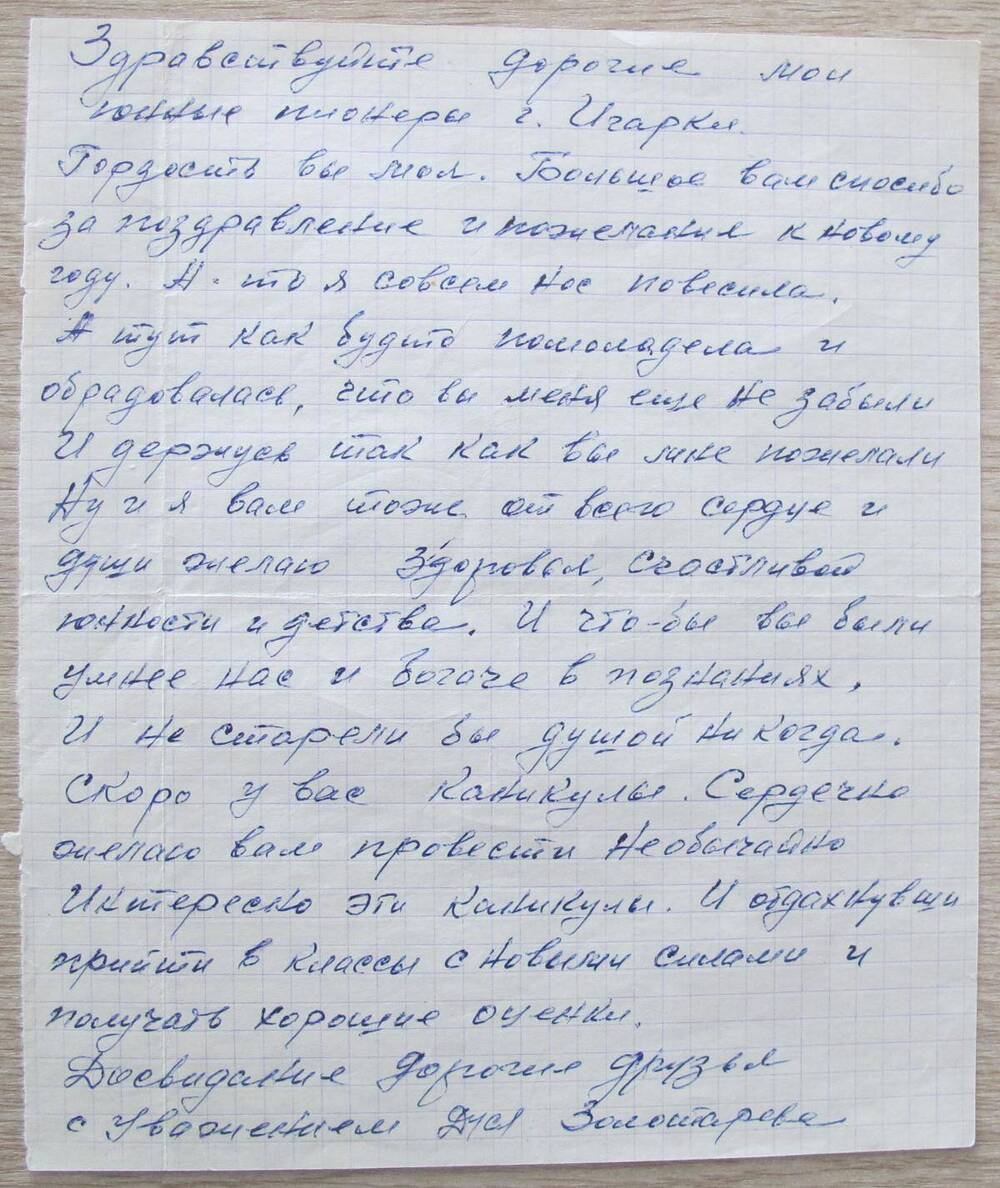 Здравствуйте дорогие мои
юнные пионеры г. Игарки.
Гордость вы моя. Большое вам спосибо
за поздравление и пожелания к новому
году. А то я совсем нос повесила.
А тут как будто помоладела и
обрадовалась, что вы меня еще не забыли
И держусь так как вы мне пожелали
Ну и я вам тоже от всего сердце и
души желаю здоровья, счастливой
юнности и детства. И что-бы вы были
умнее нас и богаче в познаниях.
И не старели бы душой никогда.
Скоро у вас каникулы. Сердечно
желаю вам провести необычайно
Интересно эти каникулы. И отдахнувши
прийти в классы с новыми силами и
получать хорошие оценки.
Досвидание дорогие друзья
с Уважением Дуся Золотарева